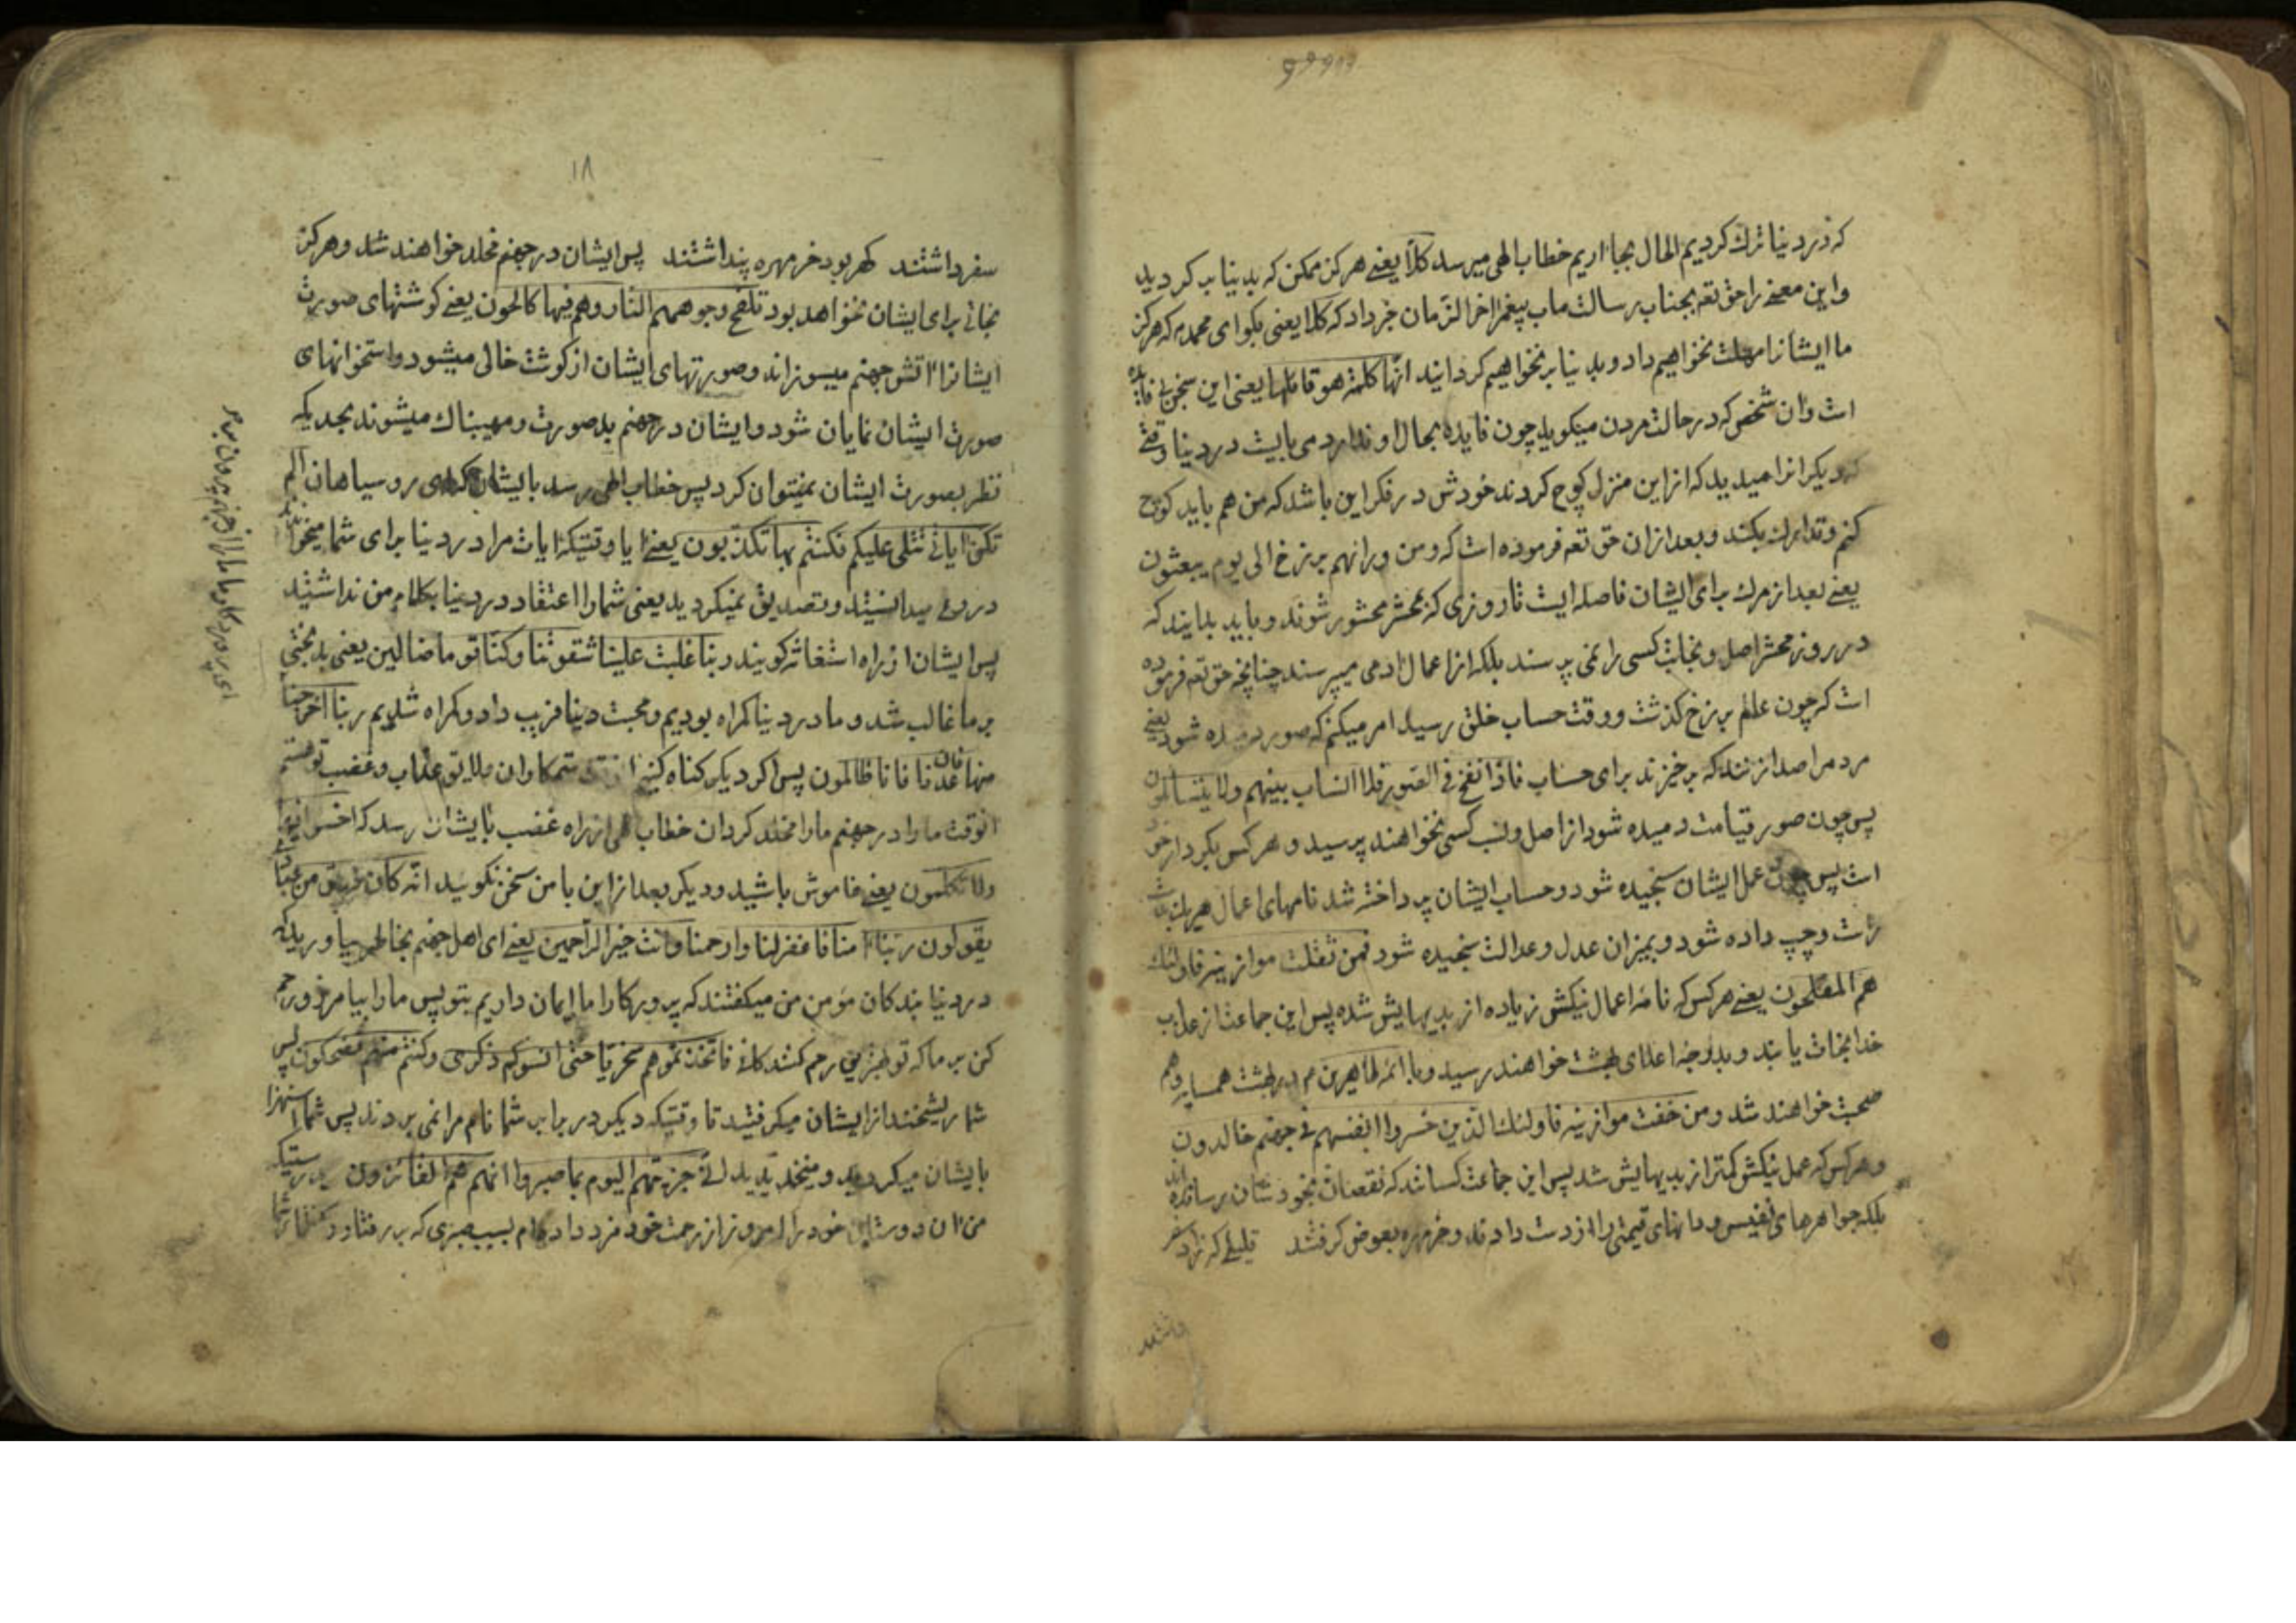 که در دنیا ترك کردیم الحال بجا اریم خطاب الهی میرسد کلّا یعنے هرکز ممکن که بدنیا بر کردید
واین معنے را حق تعم بجناب رسالت ماب پیغمبر اخر الزّمان خبر داد که کلّا یعنی بکو ای محمد م که هرکز
ما ایشانرا مهلت نخواهیم داد و بدنیا بر نخواهیم کردانید انّها کلمة هو قائلها یعنی این سخن
است وان شخص که در حالت مردن میکوید چون فایده بحال او ندارد می بایست در دنیا وقتے
که دیکرانرا میدید که از این منزل کوچ کردند خودش در فکر این باشد که من هم باید کوچ
کنم و تدارك بکند و بعد از ان حق تعم فرموده است که ومن ورائهم برزخ الی یوم یبعثون
یعنے بعد از مرك برای ایشان فاصله ایست تا روزی که بمحشر محشور شوند و باید بدانید که
در روز محشر اصل و نجابت کسی را نمی پرسند بلکه از اعمال ادمی میپرسند چنانچه حق تعم فرموده
است که چون عالم برزخ کذشت ووقت حساب خلق رسید امر میکنم که صور دمیده شود یعنے
مردمرا صدا زنند که برخیزند برای حساب فاذا نفخ فی الصّور فلا انساب بینهم ولا یتسائلون
پس چون صور قیامت دمیده شود از اصل ونسب کسی نخواهند پرسید و هر کس بکردار خود
است پس چون عمل ایشان سنجیده شود وحساب ایشان پرداخته شد نامهای اعمال هریك
راست وچپ داده شود و بمیزان عدل وعدالت سنجیده شود فمن ثقلت موازینه فاولئك
هم المفلحون یعنے هر کس که نامهٔ اعمال نیکش زیاده از بدیهایش شده پس این جماعت از عذاب
خدا نجات یابند و بدرجهٔ اعلای بهشت خواهند رسید وبا ائمهٔ طاهرین م در بهشت همسایه وهم
صحبت خواهند شد ومن خفت موازینه فاولئك الذین خسروا انفسهم فی جهنم خالدون
وهر کس که عمل نیکش کمتر از بدیهایش شد پس این جماعت کسانند که نقصان بخودشان رسانده اند
بلکه جواهرهای نفیس و مانهای قیمتی را از دست دادند وخرمهره بعوض کرفتند
۱۸
سفر داشتند کهر بود خر مهره پنداشتند پس ایشان در جهنم مخلد خواهند شد وهرکز
نجاتی برای ایشان نخواهد بود تلفح وجوههم النار وهم فیها کالحون یعنے کوشتهای صورت
ایشانرا اتش جهنم میسوزاند وصورتهای ایشان از کوشت خالی میشود واستخوانهای
صورت ایشان نمایان شود وایشان در جهنم بد صورت ومهیبناك میشوند بحدیکه
نظر بصورت ایشان نمیتوان کرد پس خطاب الهی رسد بایشان که ای روسیاهان الم
تکن ایاتی تتلی علیکم فکنتم بها تکذبون یعنے ایا وقتیکه ایات مرا در دنیا برای شما میخواندند
دروغ میدانستند وتصدیق نمیکردید یعنی شما را اعتقاد در دنیا بکلام من نداشتید
پس ایشان از راه استغاثه کویند ربنا غلبت علینا شقوتنا وکنا قوما ضالین یعنی بدبختی
بر ما غالب شد و ما در دنیا کمراه بودیم ومحبت دنیا فریب داد وکمراه شدیم ربنا اخرجنا
منها فان عدنا فانا ظالمون پس اکر دیکر کناه کنیم ستمکاران ملایق عذاب وغضب تو هستیم
انوقت ما را در جهنم ما را مخلد کردان خطاب الهی از راه غضب بایشان رسد که اخسوا فیها
ولا تکلمون یعنے خاموش باشید ودیکر بعد از این با من سخن نکوئید انّه کان فریق من عبادی
یقولون ربنا امنا فاغفر لنا وارحمنا وانت خیر الرّاحمین یعنے ای اهل جهنم بخاطر بیاورید که
در دنیا بندکان مؤمن من میکفتند که پروردکارا ما ایمان داریم بتو پس ما را بیامرز ورحم
کن بر ما که تو بهترین رحم کنندکانے فاتخذتموهم سخریّا حتی انسوکم ذکری وکنتم منهم تضحکون پس
شما ریشخند از ایشان میکرفتید تا وقتیکه دیکر در برابر شما نام مرا نمی بردند پس شما استهزا
بایشان میکردید و میخندیدید انّے جزیتهم الیوم بما صبروا انهم هم الفائزون بدرستیکه
من ان دوستان خود را امروز از رحمت خود مزد داده ام بسبب صبری که بر رفتار و